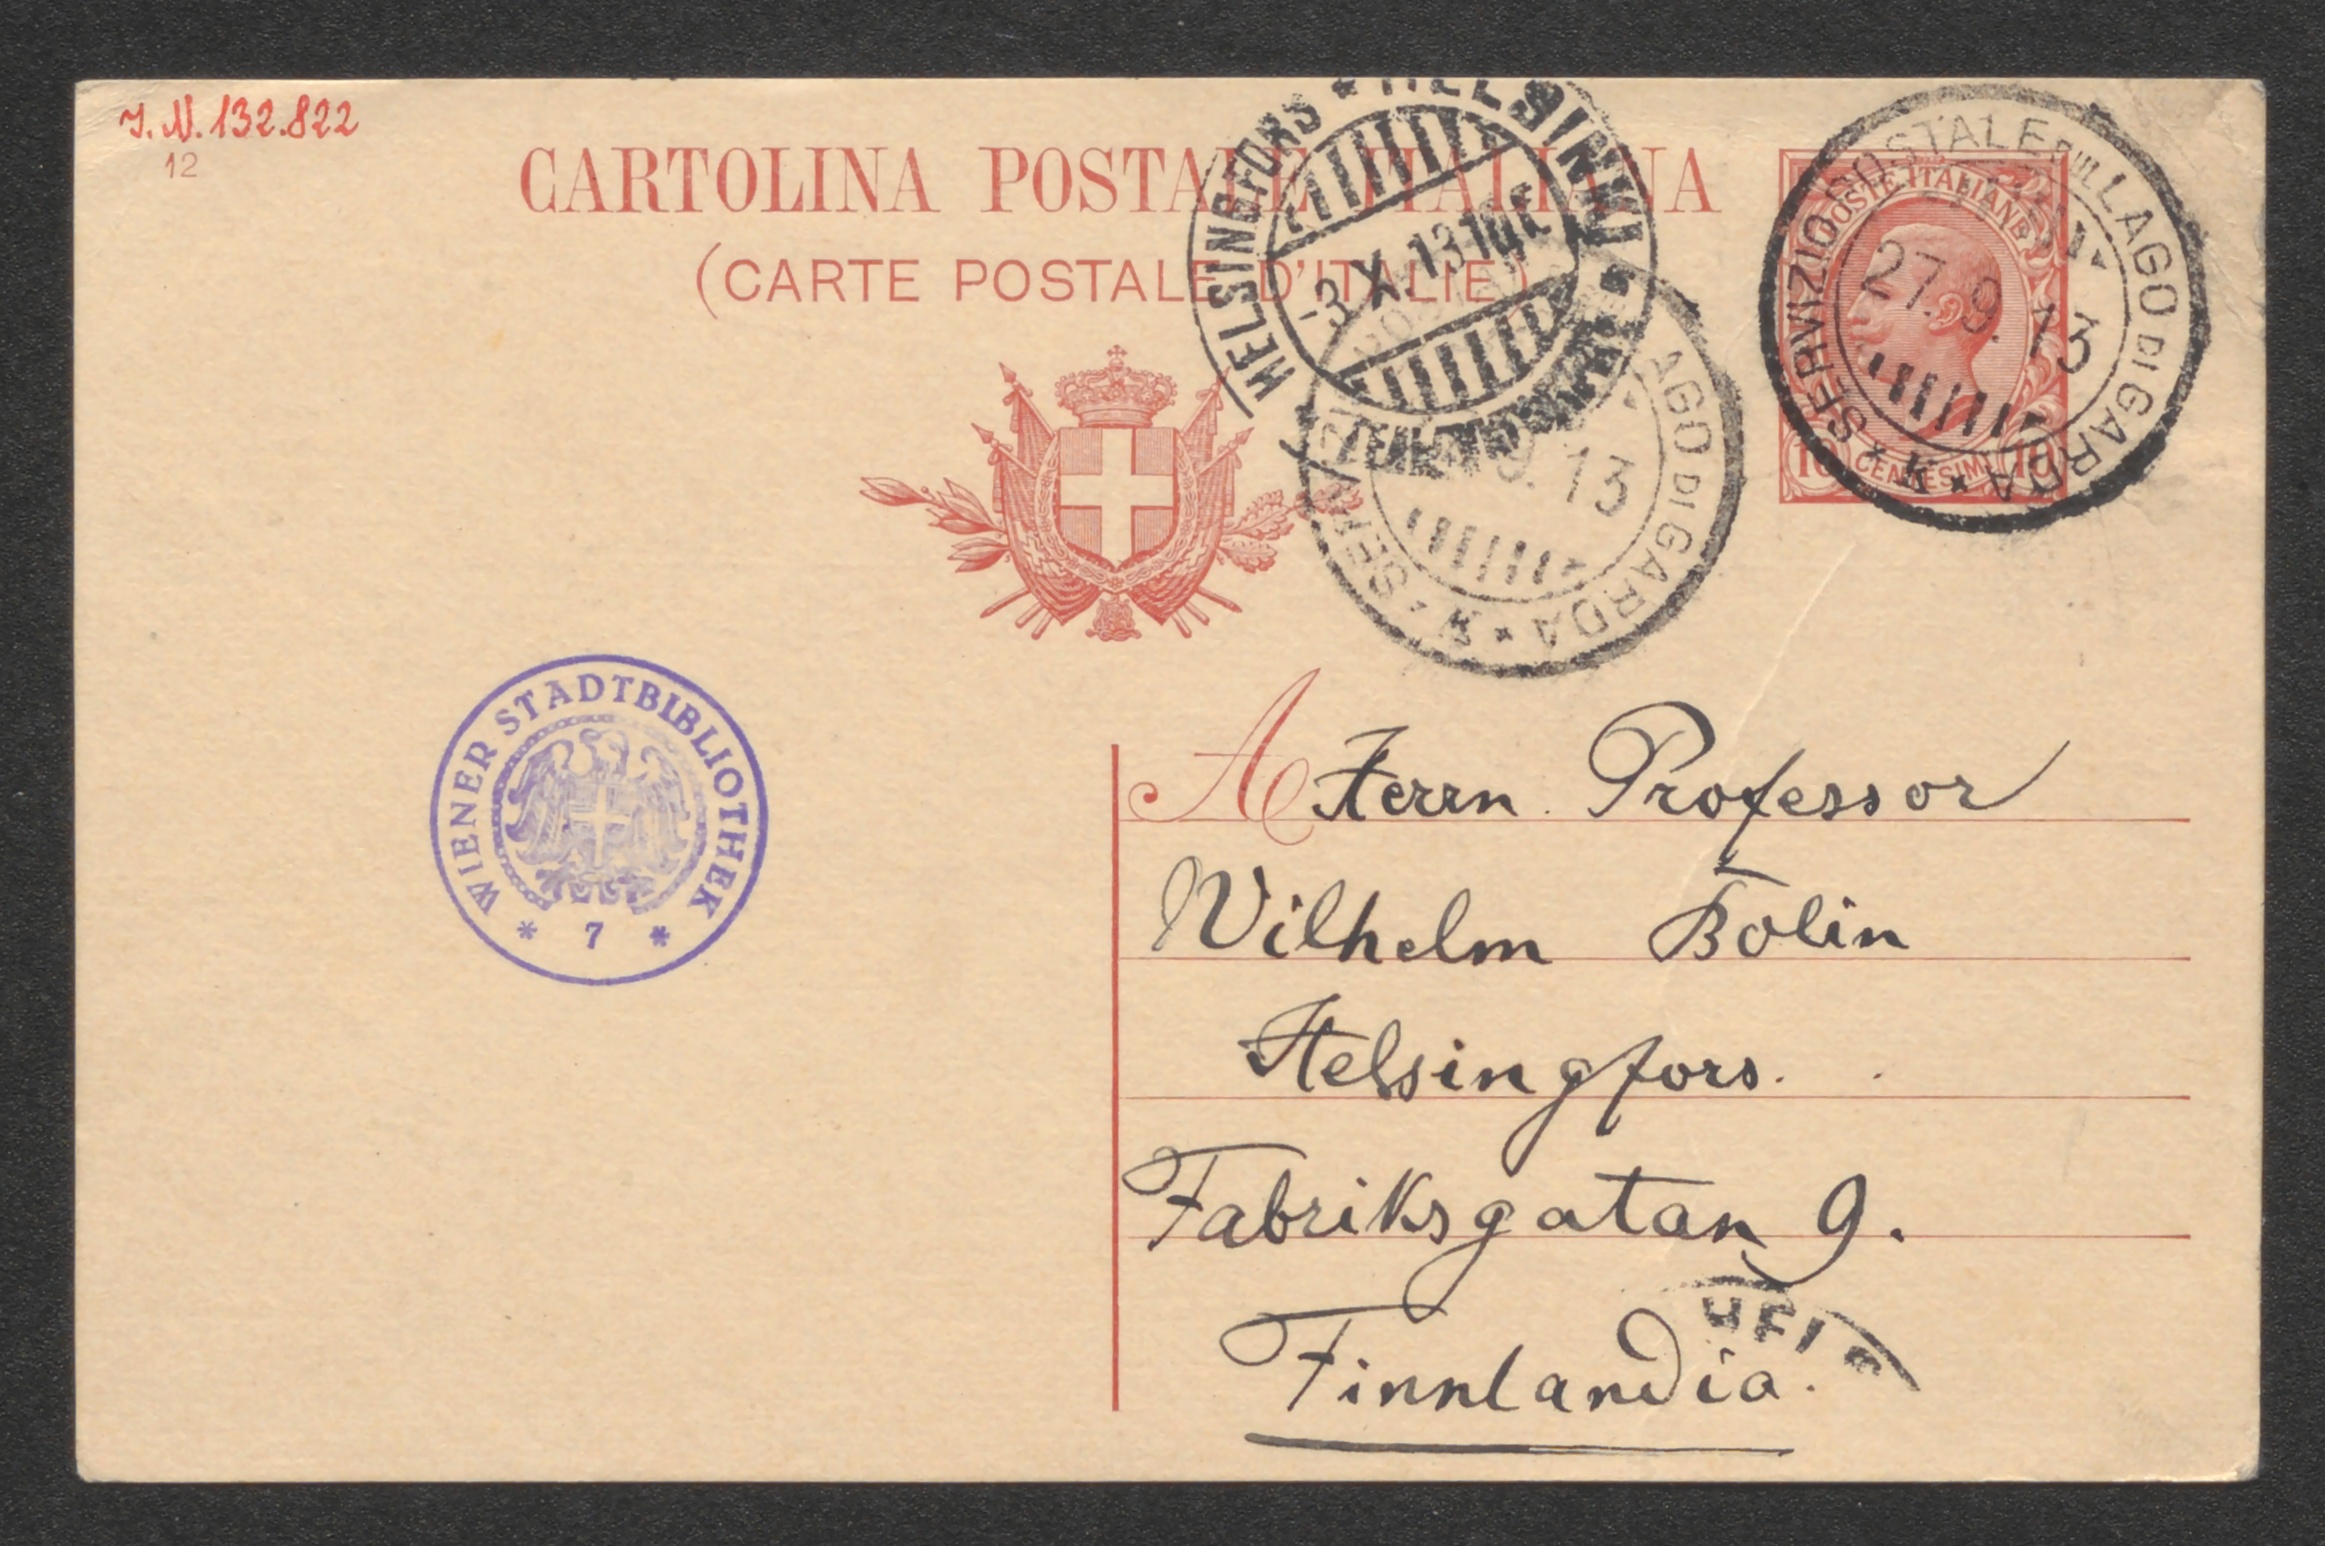 J. N. 132.822
12
CARTOLINA POSTALE ITALIANA
(CARTE POSTALE D'ITALIE)
HELSINGFORS * HELSINKI
3 X 13
SERVIZIO POSTALE SUL LAGO DI GARDA
27. 9. 13
POSTE ITALIANE
10 CENTESIMI 10
AGO DI GARDA
9. 13
WIENER STADTBIBLIOTHEK
* 7 *
A Herrn Professor
Wilhelm Bolin
Helsingfors.
Fabriksgatan 9.
Finnlandia.